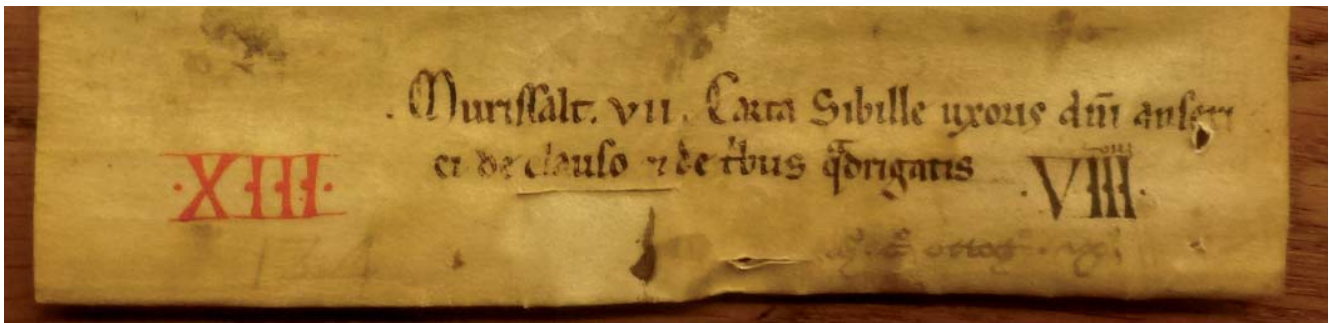 . Murissalt. VII. Carta Sibille uxoris dni anseri
ci de clauso ⁊ de tbus qdrigatis
·XIII· ·VIII·
134